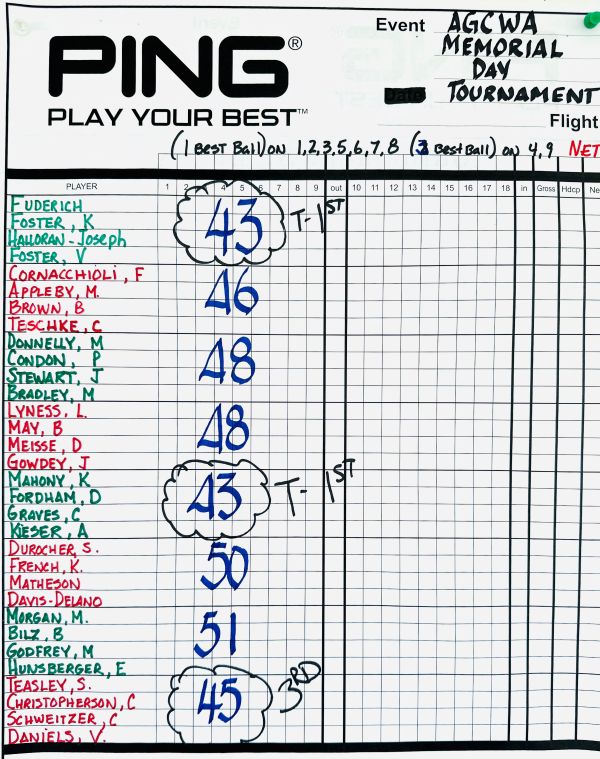 Event AGCWA
MEMORIAL
DAY
TOURNAMENT
PING®
PLAY YOUR BEST™
Flight
(1 BEST Ball) ON 1,2,3,5,6,7,8 (3 BEST Ball) ON 4,9 NET
PLAYER 1 2 3 4 5 6 7 8 9 out 10 11 12 13 14 15 16 17 18 in Gross Hdcp Ne
FUDERICH
FOSTER, K
HALLORAN-JOSEPH
FOSTER, V
43 T-1ST
CORNACCHIOLI, F
APPLEBY, M.
BROWN, B
TESCHKE, C
46
DONNELLY, M
CONDON, P
STEWART, J
BRADLEY, M
48
LYNESS, L.
MAY, B
MEISSE, D
GOWDEY, J
48
MAHONY, K
FORDHAM, D
GRAVES, C
KIESER, A
43 T-1ST
DUROCHER, S.
FRENCH, K.
MATHESON
DAVIS-DELANO
50
MORGAN, M.
BILZ, B
GODFREY, M
HUNSBERGER, E
51
TEASLEY, S.
CHRISTOPHERSON, C
SCHWEITZER, C
DANIELS, V.
45 3RD